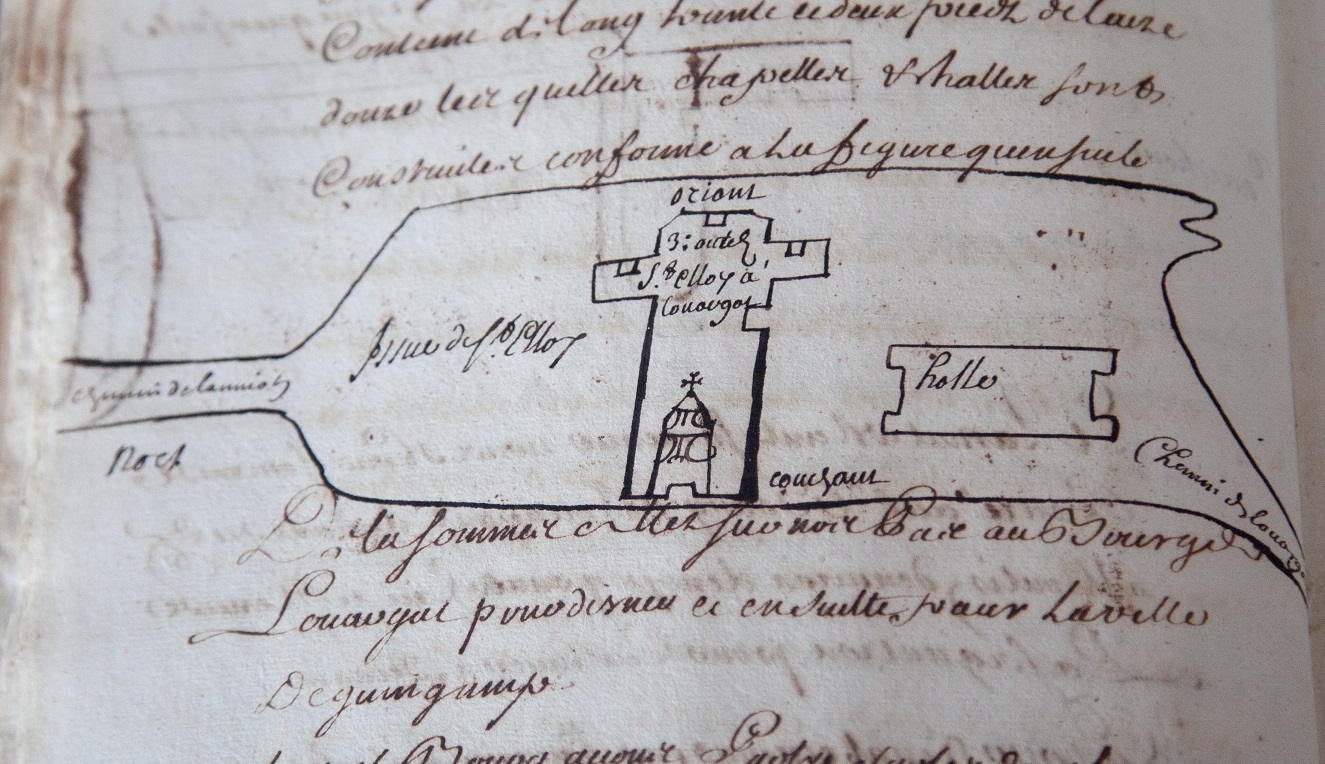 Contient de long trente et deux pieds de laize
douze lesquelles chapelles & halles sont
Construites conforme a la figure quensuit
oriant
3: autel
St Elloy a
Louargat
Issue de St Elloy
halle
chemin de lannion
Nort
couchant
Chemin de
De la sommes allez au Bourg de
Louargat pour disner et ensuitte pour la ville
De guingamp
Bourg avoir